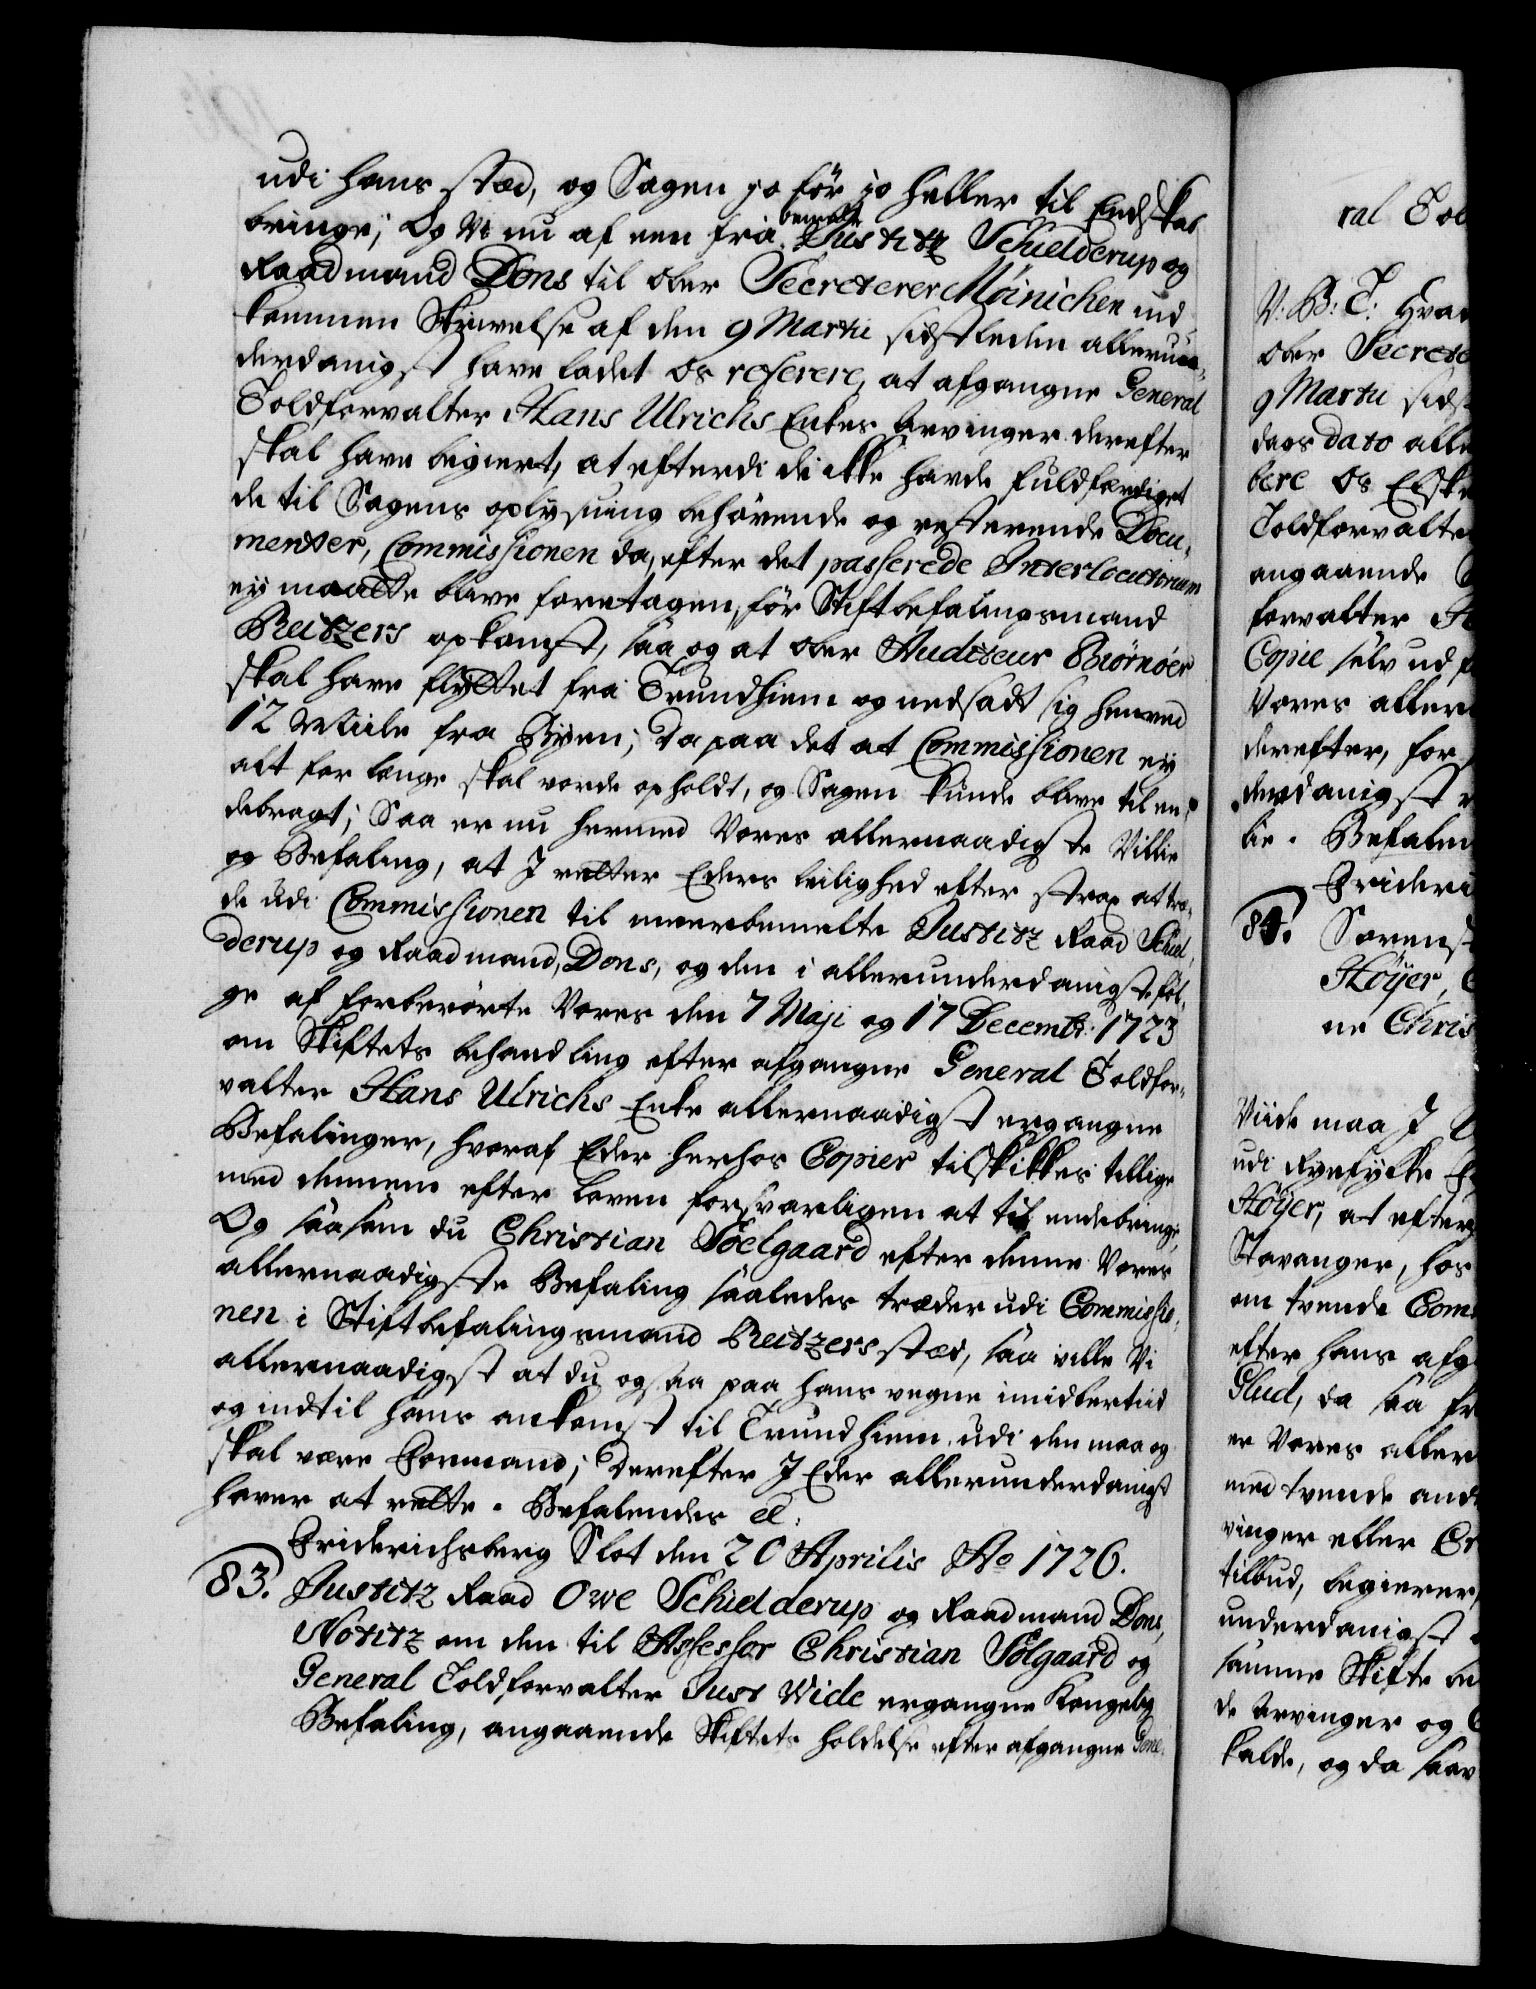 udi hans stæd, og Sagen jo før jo heller til Endskab
bringe; Og Vi nu af een fra bemelte Justitz Schielderup og
Raadmand Dons til Ober Secreterer Möinichen ind-
kommen Skrivelse af den 9 Martii sidstleden allerun-
derdanigst have ladet os referere, at afgangne General
Toldforvalter Hans Ulrichs Enkes Arvinger derefter
skal have begiert, at efterdi de ikke havde fuldfærdiget
de til Sagens oplysning behövende og resterende Docu-
menter, Commissionen da, efter det passerede Interlocutorium
ey maatte blive foretagen, før Stiftbefalingsmand
Reitzers opkomst, saa og at Ober Auditeur Biörnöer
skal have flyttet fra Trundhiem og nedsadt sig henved
12 Miile fra Byen; Da paa det at Commissionen ey
alt for længe skal vorde opholdt, og Sagen kunde blive til en-
debragt; Saa er nu hermed Vores allernaadigste Villie
og Befaling, at I retter Eders leilighed efter strax at træ-
de udi Commissionen til meerbemelte Justitz Raad Schiel-
derup og Raadmand Dons, og den i allerunderdanigste föl-
ge af forberörte Vores den 7 Maji og 17 Decembr: 1723
om Skiftets behandling efter afgangne General Toldfor-
valter Hans Ulrichs Enke allernaadigst ergangne
Befalinger, hvoraf Eder herhos Copier tilskikkes tillige
med dennem efter loven forsvarligen at til endebringe,
Og saasom du Christian Söelgaard efter denne Vores
allernaadigste Befaling saaledes træder udi Commissio-
nen i Stiftbefalingsmand Reitzers stæd, saa ville Vi
allernaadigst at du ogsaa paa hans vegne imidlertiid
og indtil hans ankomst til Trundhiem, udi den maa og
skal være Formand; Derefter I Eder allerunderdanigst
haver at rette. Befalendes etc:
Friderichsberg Slot den 20 Aprilis Ao 1726.
83. Justitz Raad Owe Schielderup og Raadmand Dons,
Notitz om den til Assessor Christian Sölgaard og
General Toldforvalter Just Wide ergangne Kongelig
Befaling, angaaende Skiftets holdelse efter afgangne Gene-
ral Tol
V: B: T: Hvad
Ober Secrete
9 Martii sidst
dags dato alle
bere os Elske
Toldforvalte
angaaende
forvalter H
Copie selv ud
Vores aller
derefter, for
derdanigst
lie. Befalen
Frideri
84. Sorens
Höyer,
ne Chris
Viide maa I
udi Ryefylke
Höyer, at efter
Stavanger, hos
om tvende Com
efter hans afg
Glud, da saa
er Vores aller
med tvende and
vinger eller Cr
tilbud, begierer
underdanigst
samme Skifte be
de Arvinger og
kalde, og da saav